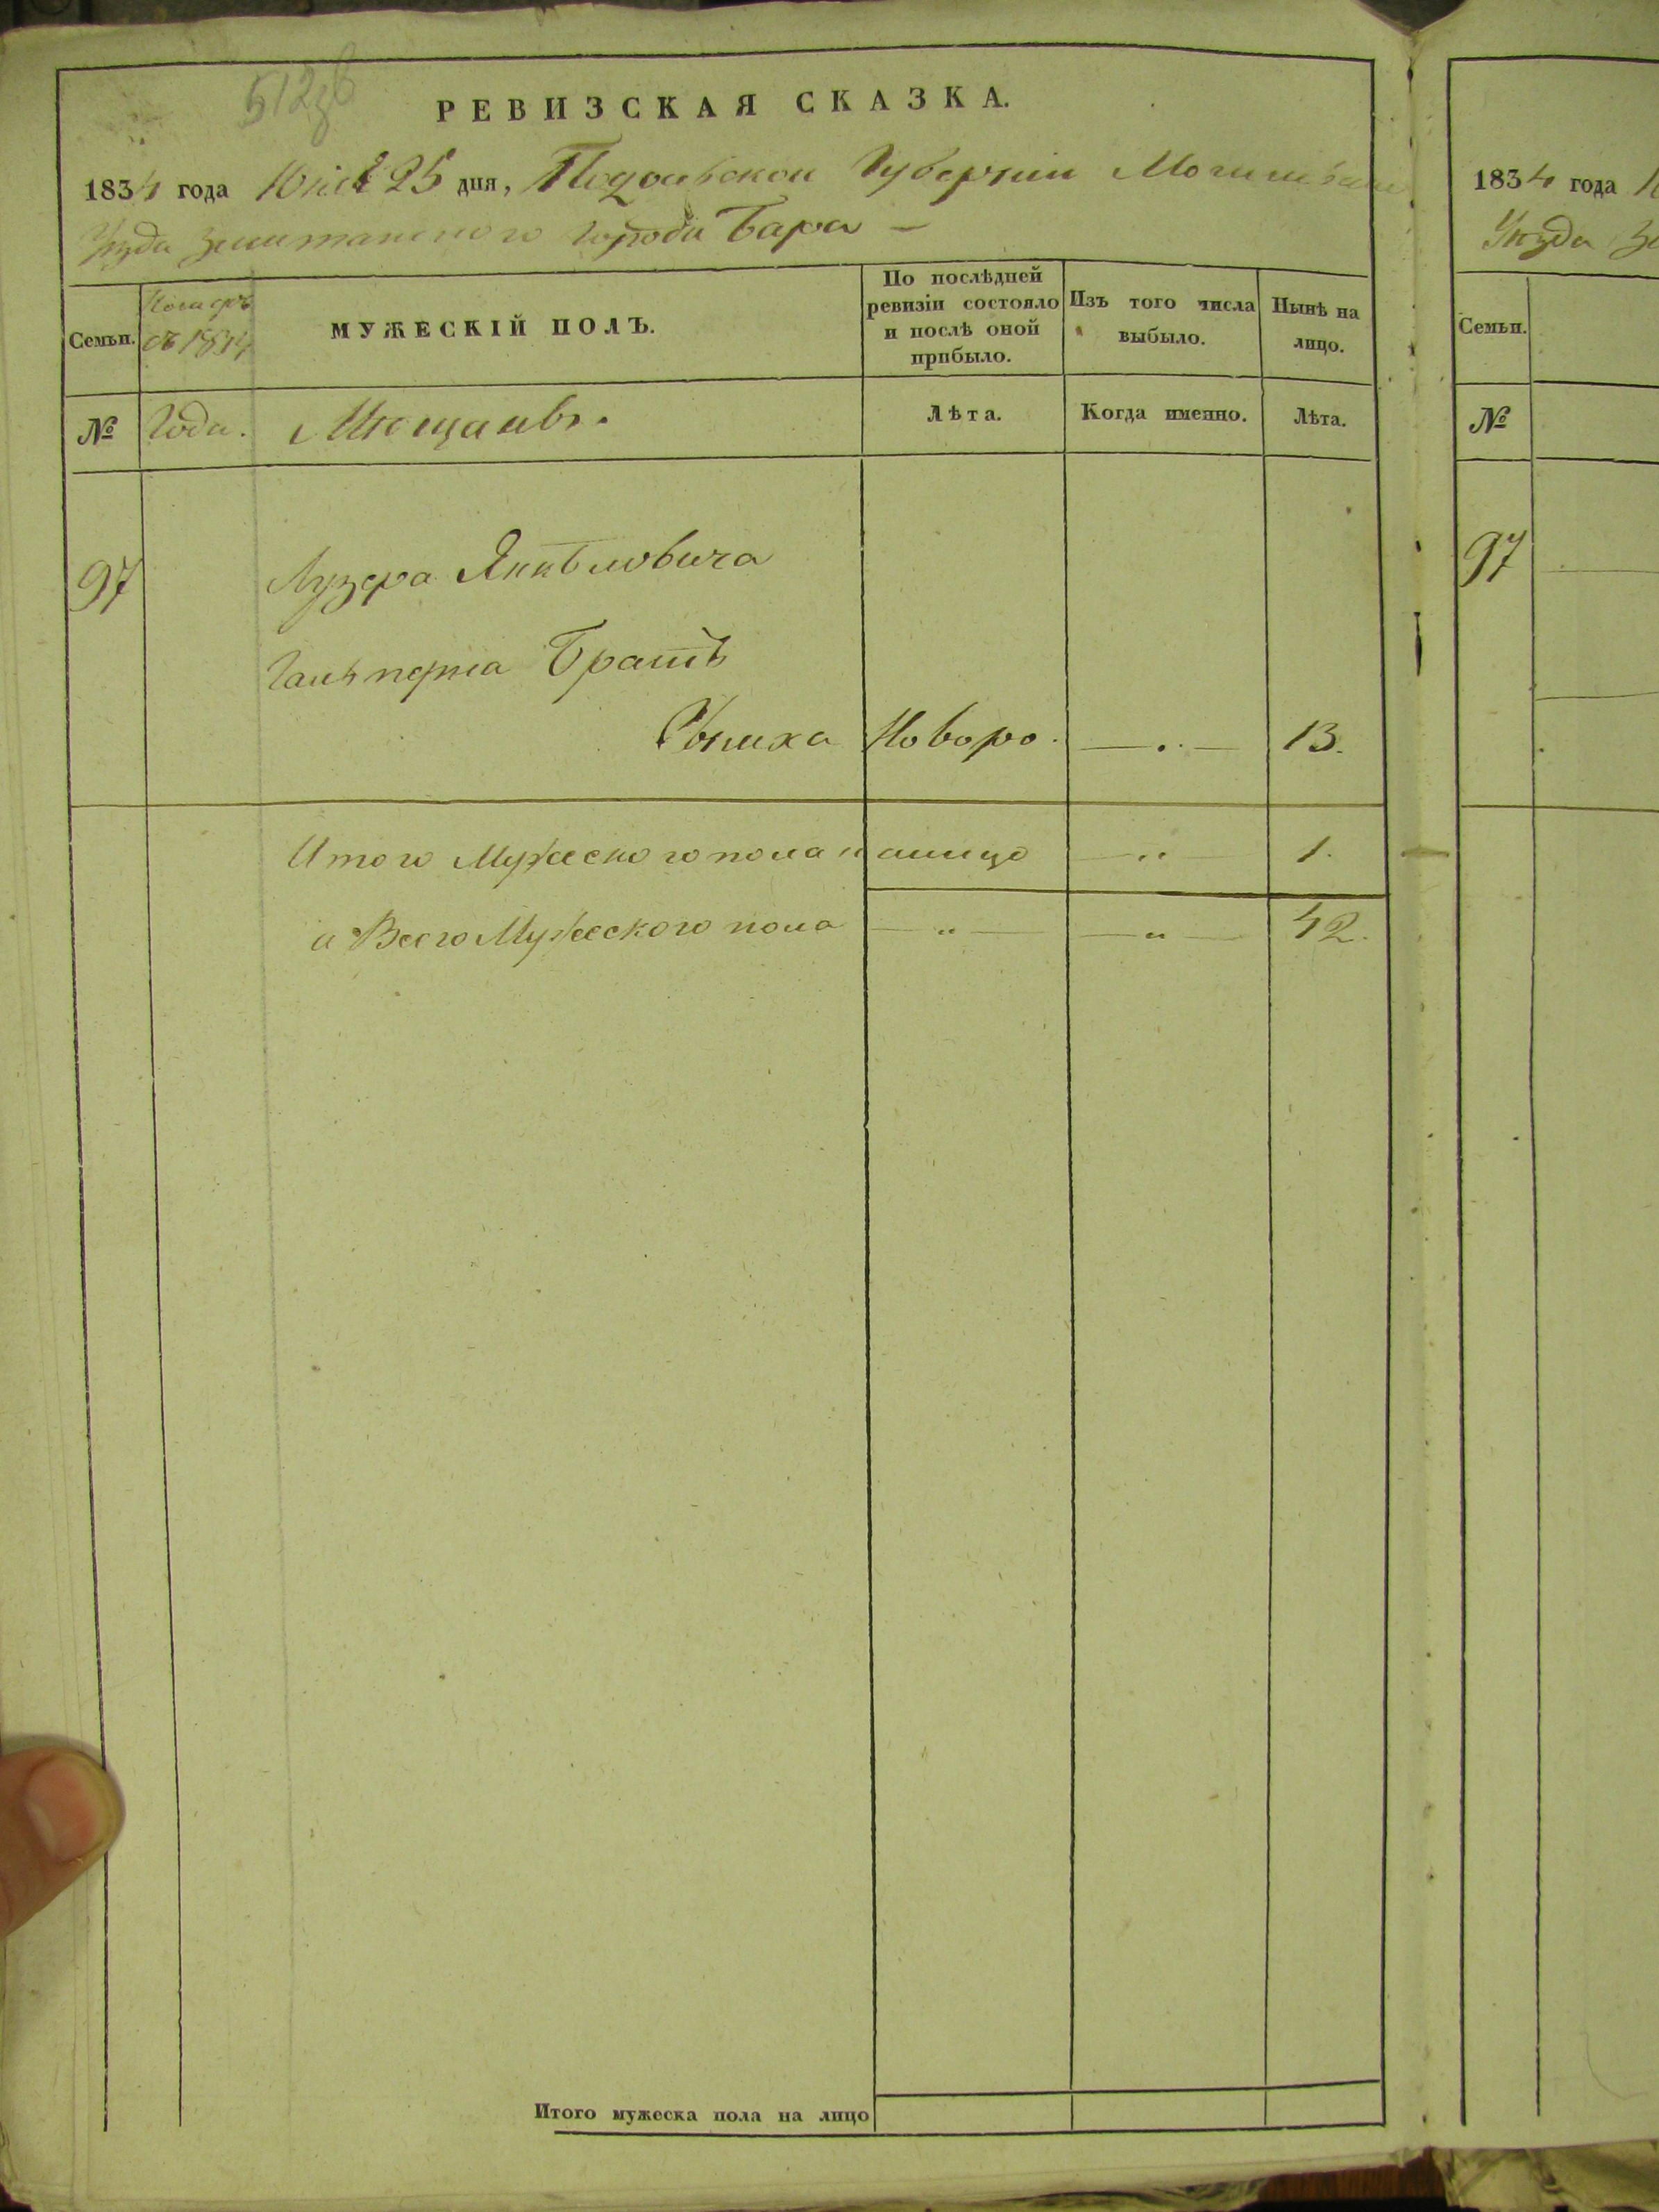 РЕВИЗСКАЯ СКАЗКА.
1834 года Юнія 25 дня, Подольской Губерніи Могилевскаго
Уѣзда Заштатного Города Бара —
Семьи.
1834
МУЖЕСКІЙ ПОЛЪ.
По послѣдней ревизіи состояло и послѣ оной прибыло.
Изъ того числа выбыло.
Нынѣ на лицо.
№
Года.
Мещанъ.
Лѣта.
Когда именно.
Лѣта.
97
Лузера Янкѣловича
Гальперна Братъ
Новоро. — . — 13.
Итого Мужеского пола налицо — " 1.
и Всего Мужеского пола — " — — " — 42.
Итого мужеска пола на лицо
1834 года
Уѣзда
Семьи.
№
97